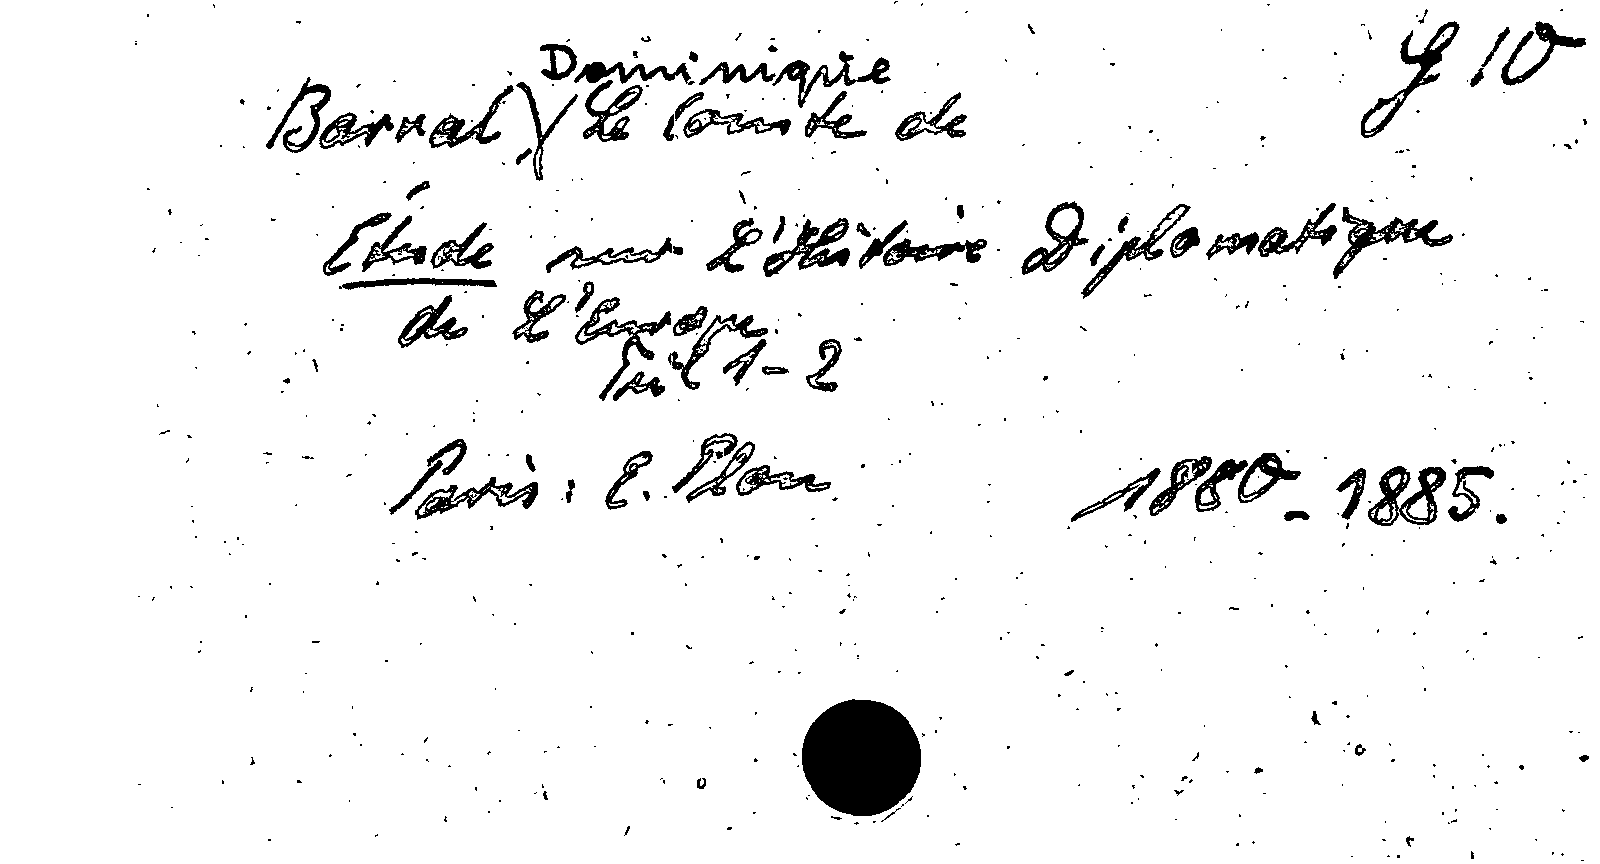 G 10
Dominique
Barral, Le Comte de
Étude sur L'Histoire Diplomatique
de L'Europe
Teil 1-2
Paris: E. Plon 1880-1885.